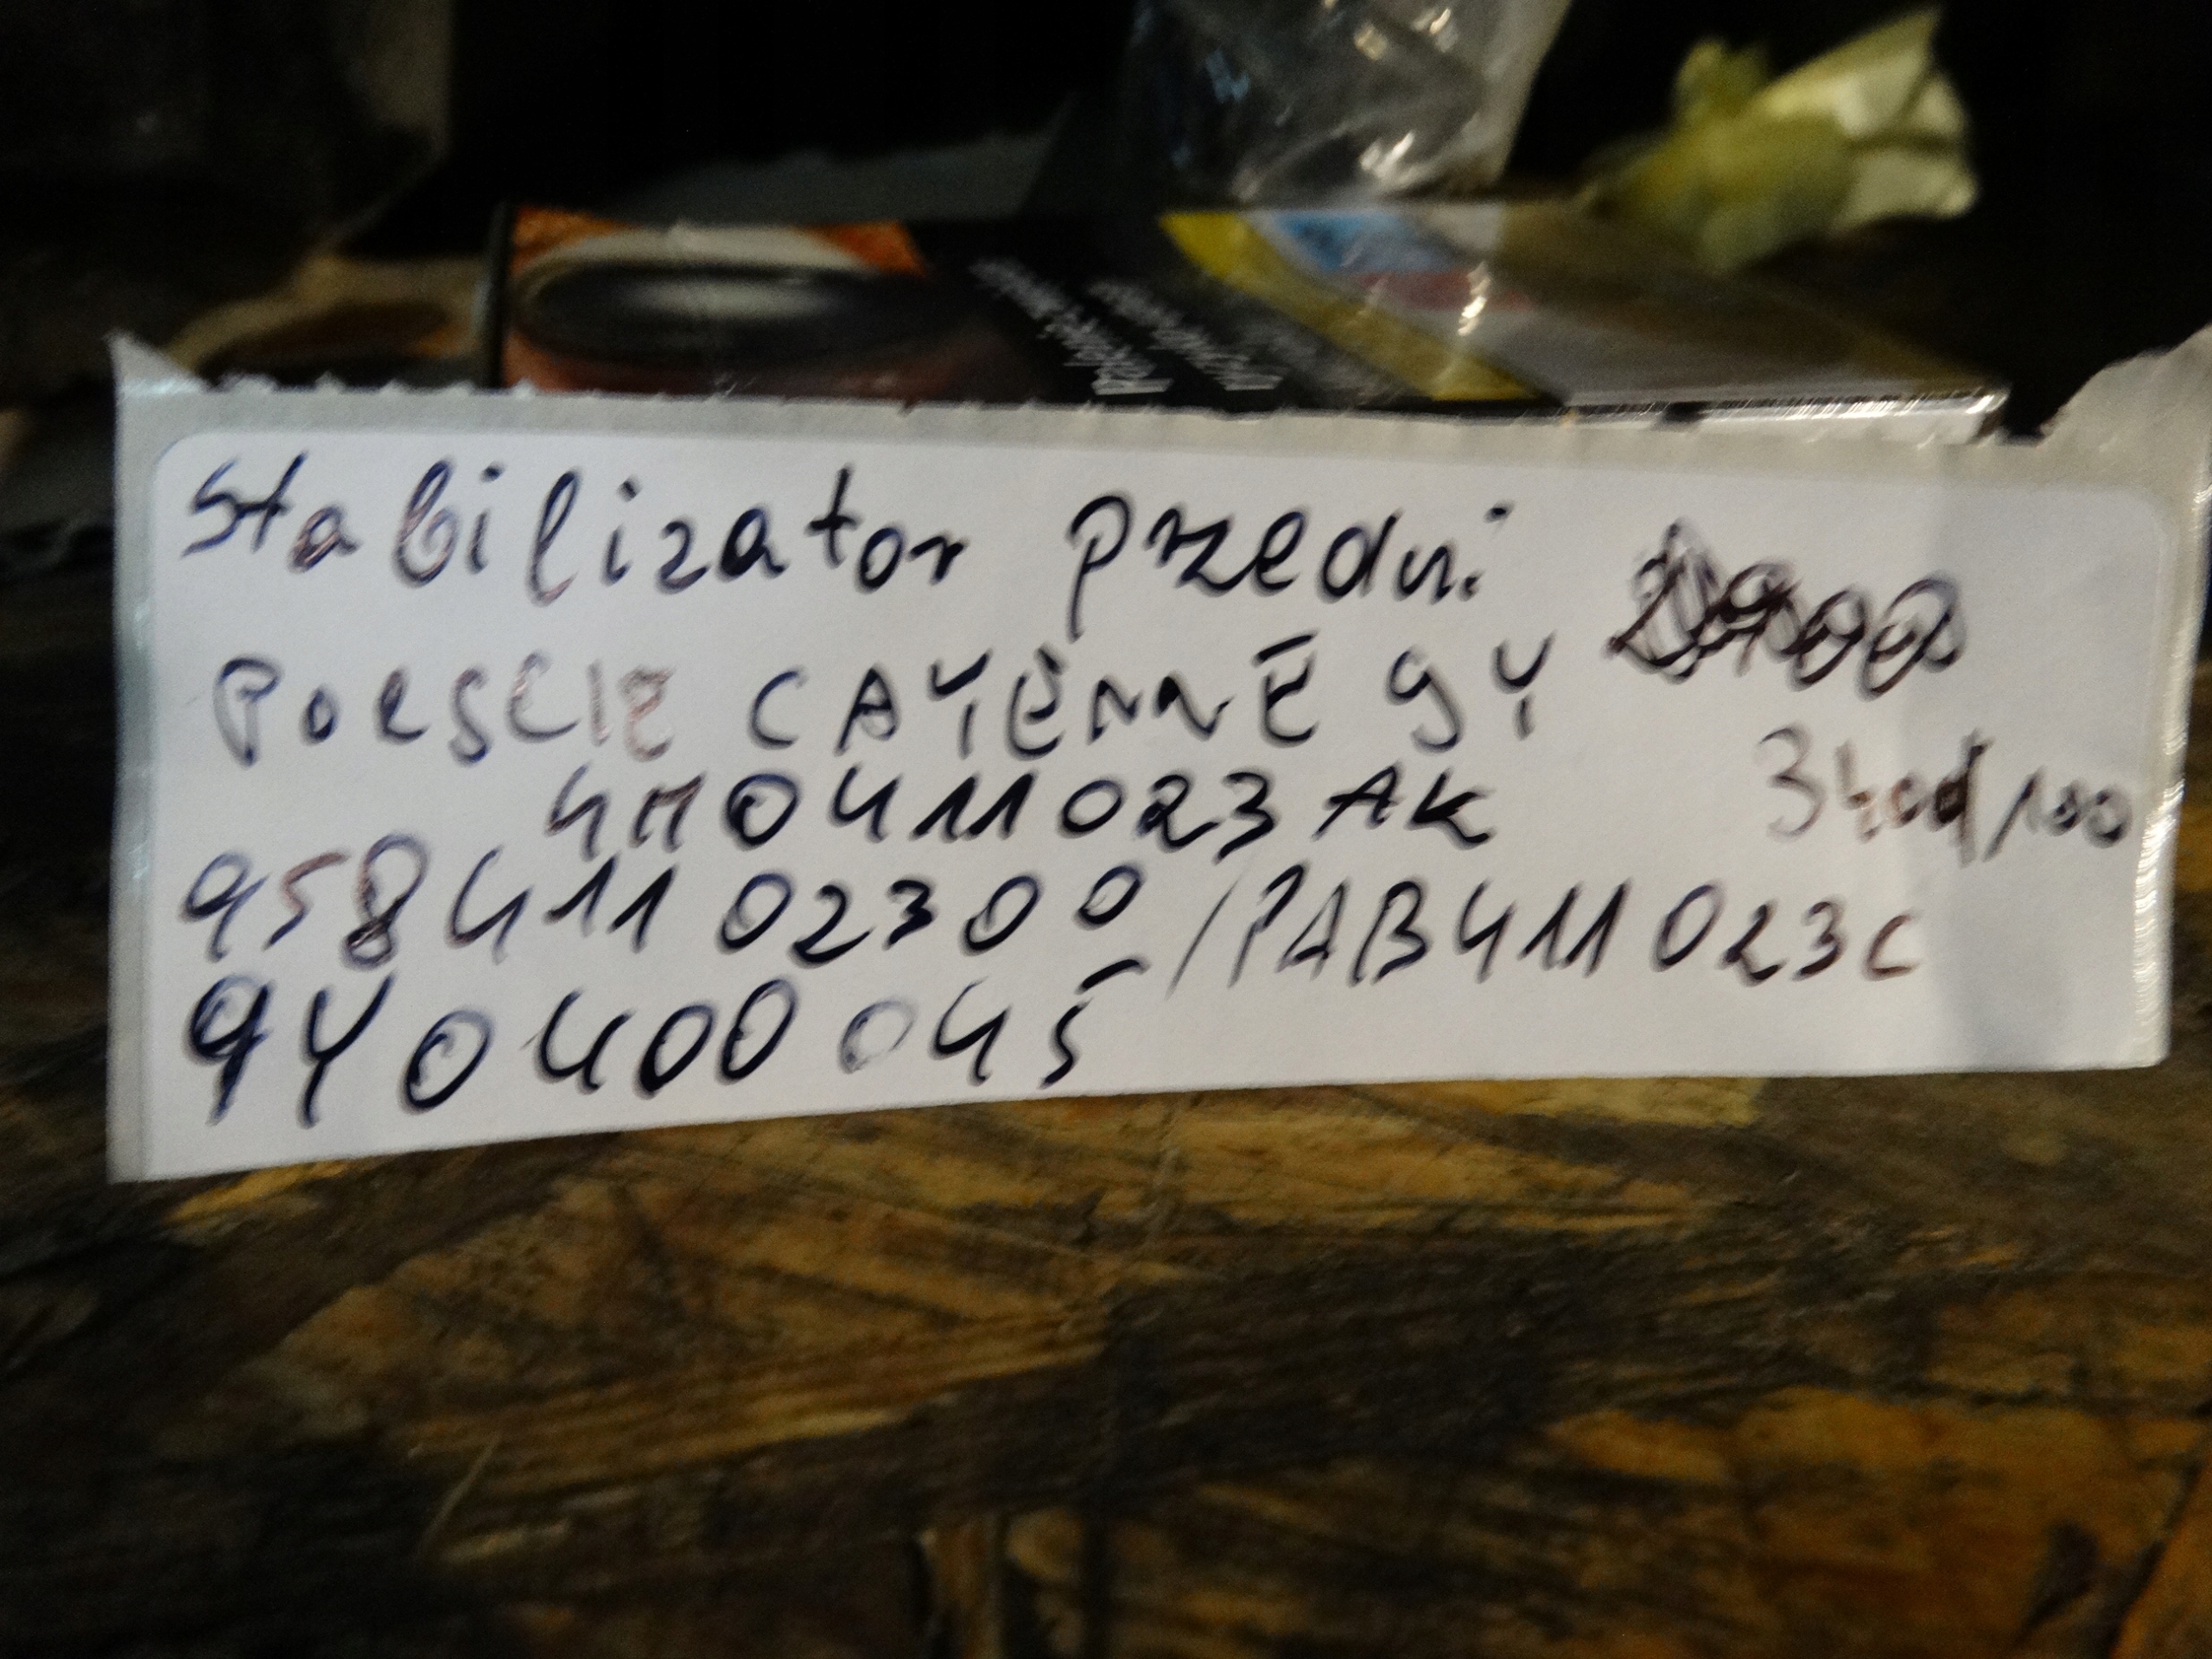 Stabilizator przedni
PORSCIE CAYENNE 9Y
4M0411023AK 3400/100
95841102300/PAB411023C
9Y0400045